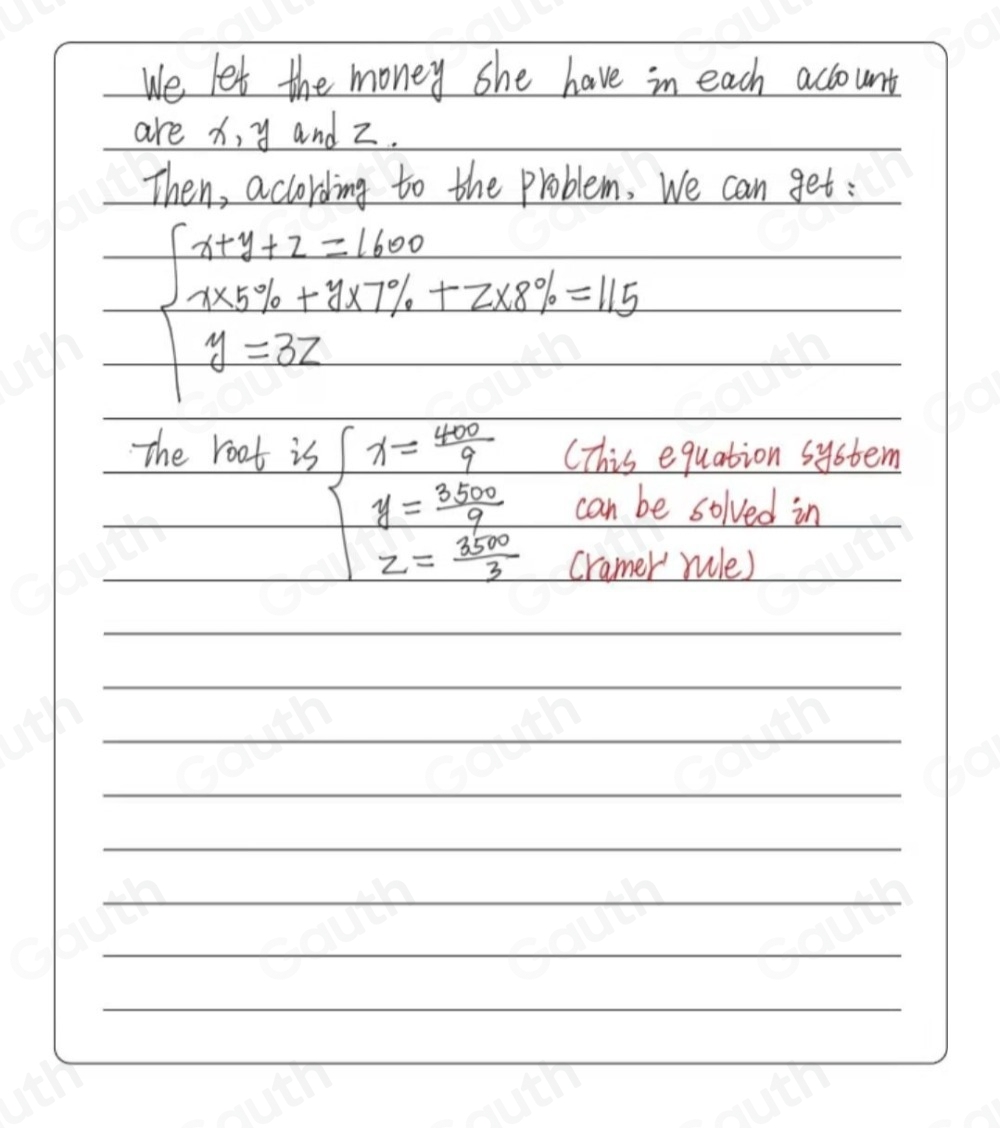 We let the money she have in each account
are x, y and z.
Then, according to the problem, We can get:
x+y+z=1600
x×5%+y×7%+z×8%=115
y=3z
The root is x=400/9 (This equation system
y=3500/9 can be solved in
z=3500/3 Cramer rule)
Gauth